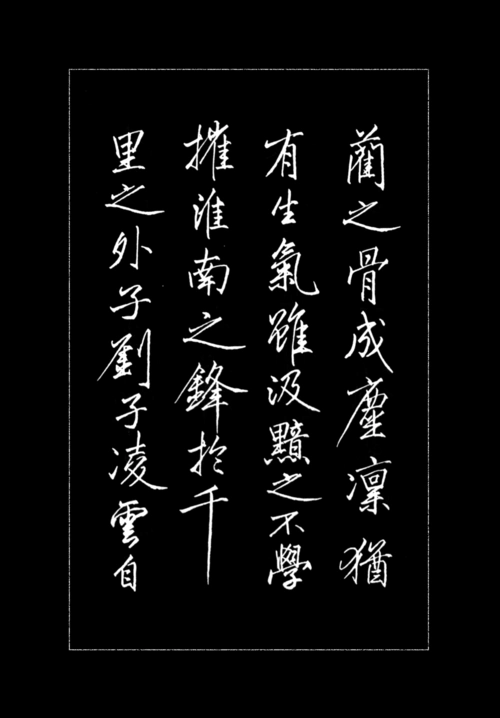 藺之骨成塵凜猶
有生氣雖汲黯之不學
摧淮南之鋒於千
里之外子劉子凌雲自